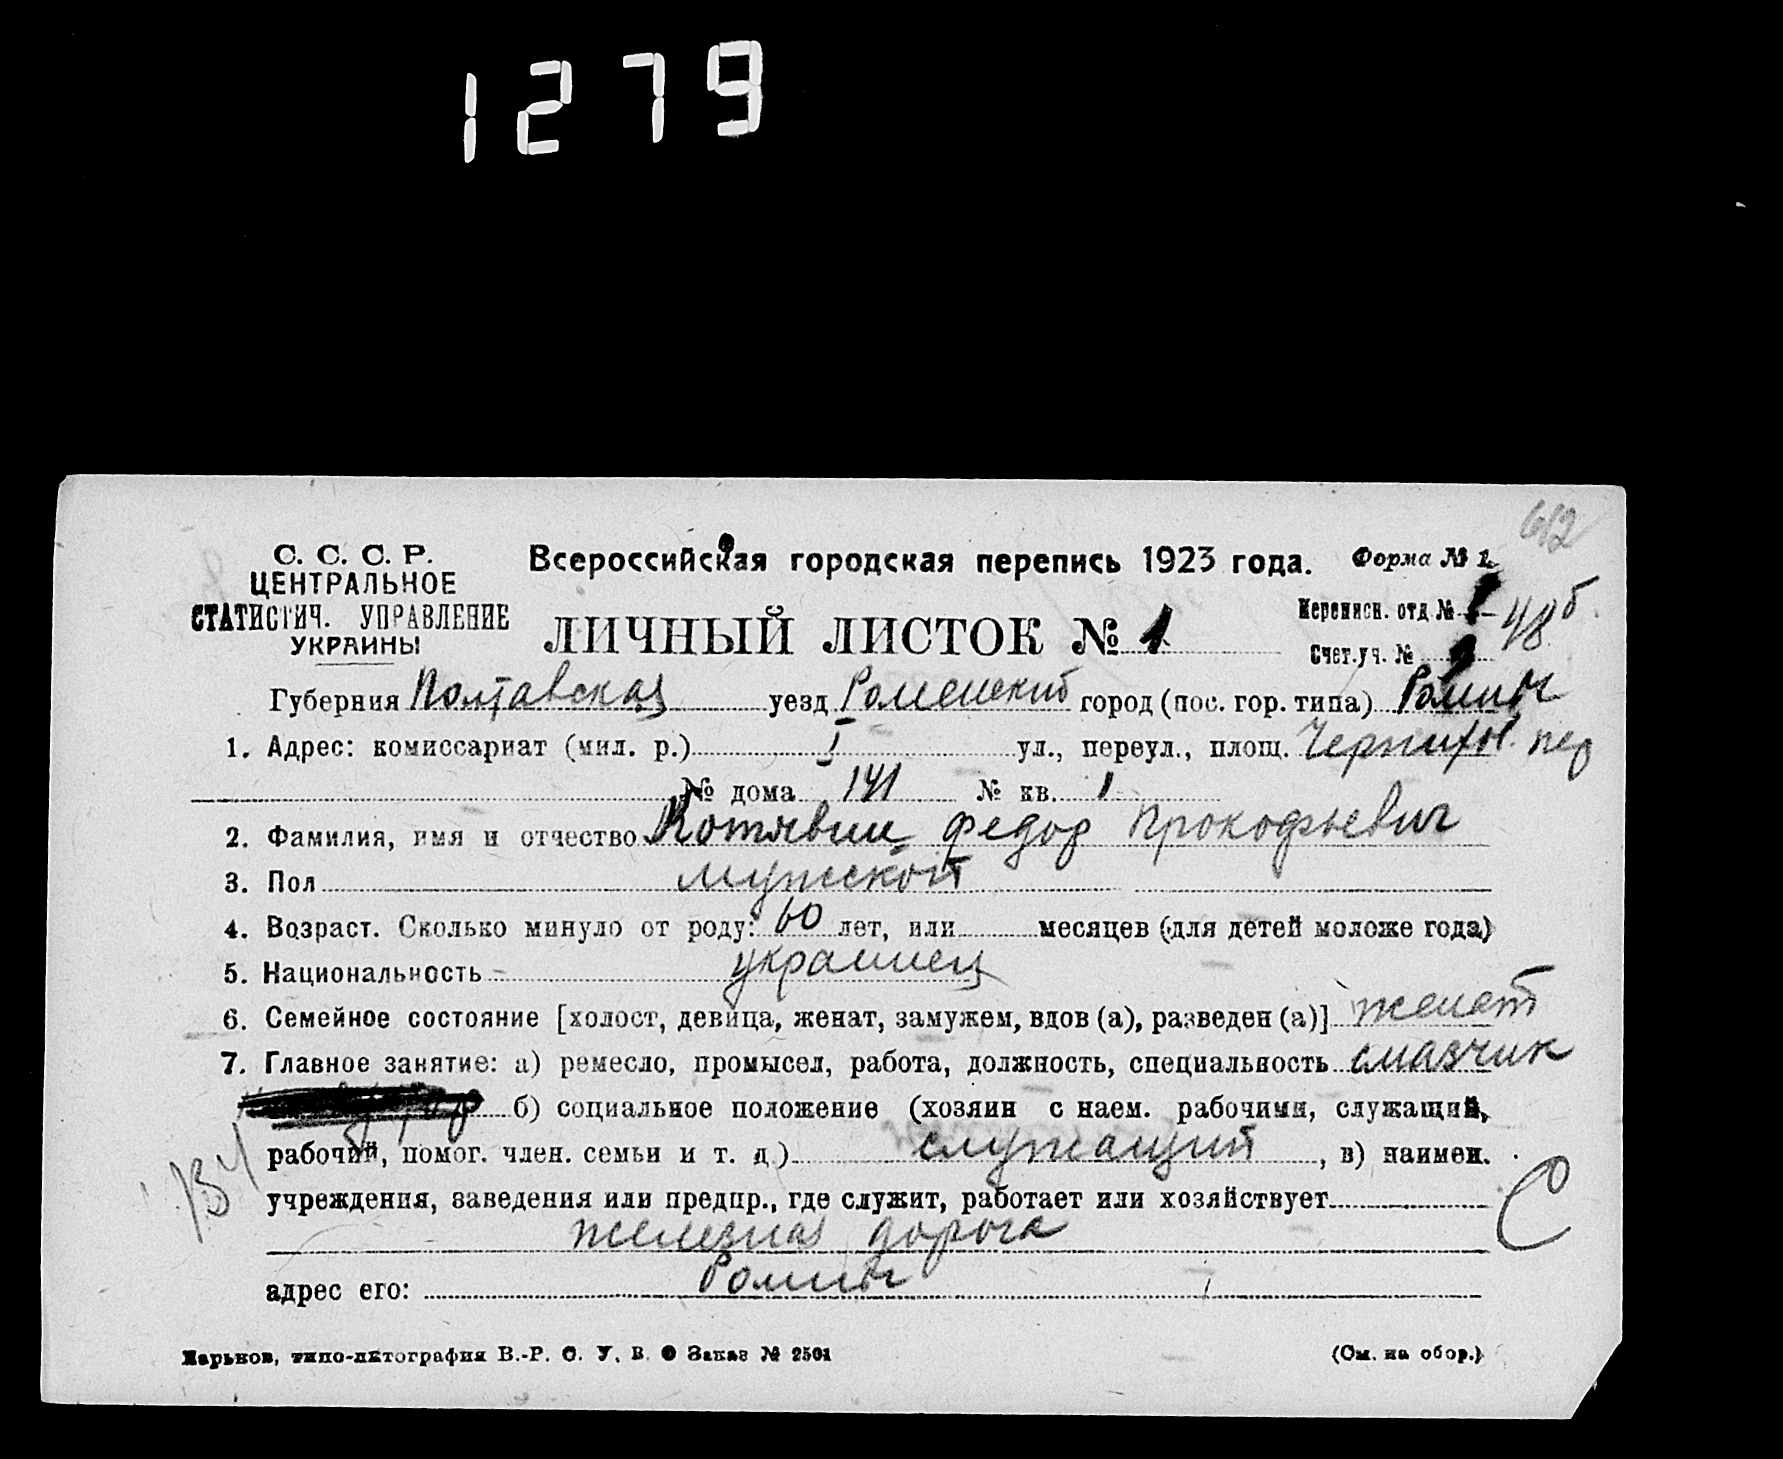 1279
612
С. С. С. Р.
ЦЕНТРАЛЬНОЕ
СТАТИСТИЧ. УПРАВЛЕНИЕ
УКРАИНЫ
Всероссийская городская перепись 1923 года.
Форма № 1.
ЛИЧНЫЙ ЛИСТОК № 1
Переписн. отд. № 1
48б
Счет. уч. №
Губерния Полтавская уезд Роменский город (пос. гор. типа) Ромны
1. Адрес: комиссариат (мил. р.) I ул., переул., площ. Чернигов. пер
№ дома 141 № кв. 1
2. Фамилия, имя и отчество Федор Прокофьевич
3. Пол мужской
4. Возраст. Сколько минуло от роду: 60 лет, или месяцев (для детей моложе года)
5. Национальность украинец
6. Семейное состояние [холост, девица, женат, замужем, вдов (а), разведен (а)] женат
7. Главное занятие: а) ремесло, промысел, работа, должность, специальность смазчик
б) социальное положение (хозяин с наем. рабочими, служащий,
рабочий, помог. член. семьи и т. д.) служащий, в) наимен.
134
учреждения, заведения или предпр., где служит, работает или хозяйствует
С
железная дорога
адрес его: Ромны
Харьков, типо-литография В.-Р. С. У. В. О Заказ № 2501
(См. на обор.)